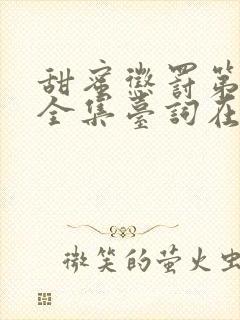 甜蜜懲罰第
全集臺詞在
微笑的萤火虫